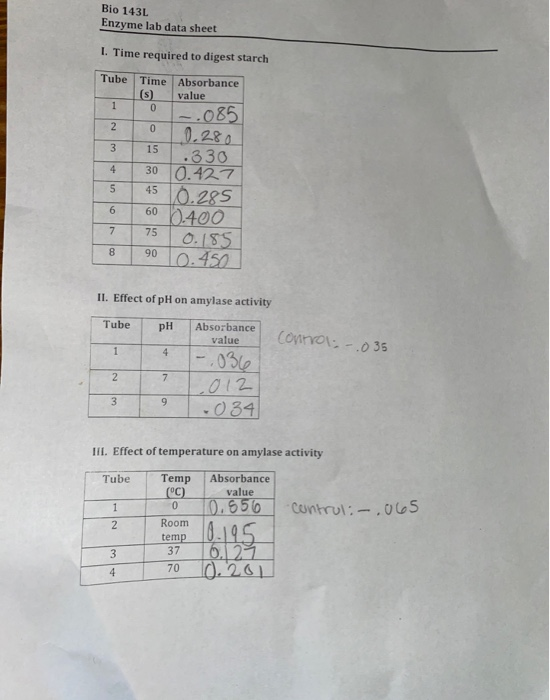 Bio 143L
Enzyme lab data sheet
I. Time required to digest starch
Tube Time (s) Absorbance value
1 0 -.085
2 0 0.280
3 15 .330
4 30 0.427
5 45 0.285
6 60 0.400
7 75 0.185
8 90 0.450
II. Effect of pH on amylase activity
Tube pH Absorbance value
control: -.035
1 4 -.036
2 7 .012
3 9 .034
III. Effect of temperature on amylase activity
Tube Temp (°C) Absorbance value
1 0 0.656 control: -.065
2 Room temp 0.195
3 37 0.127
4 70 0.261